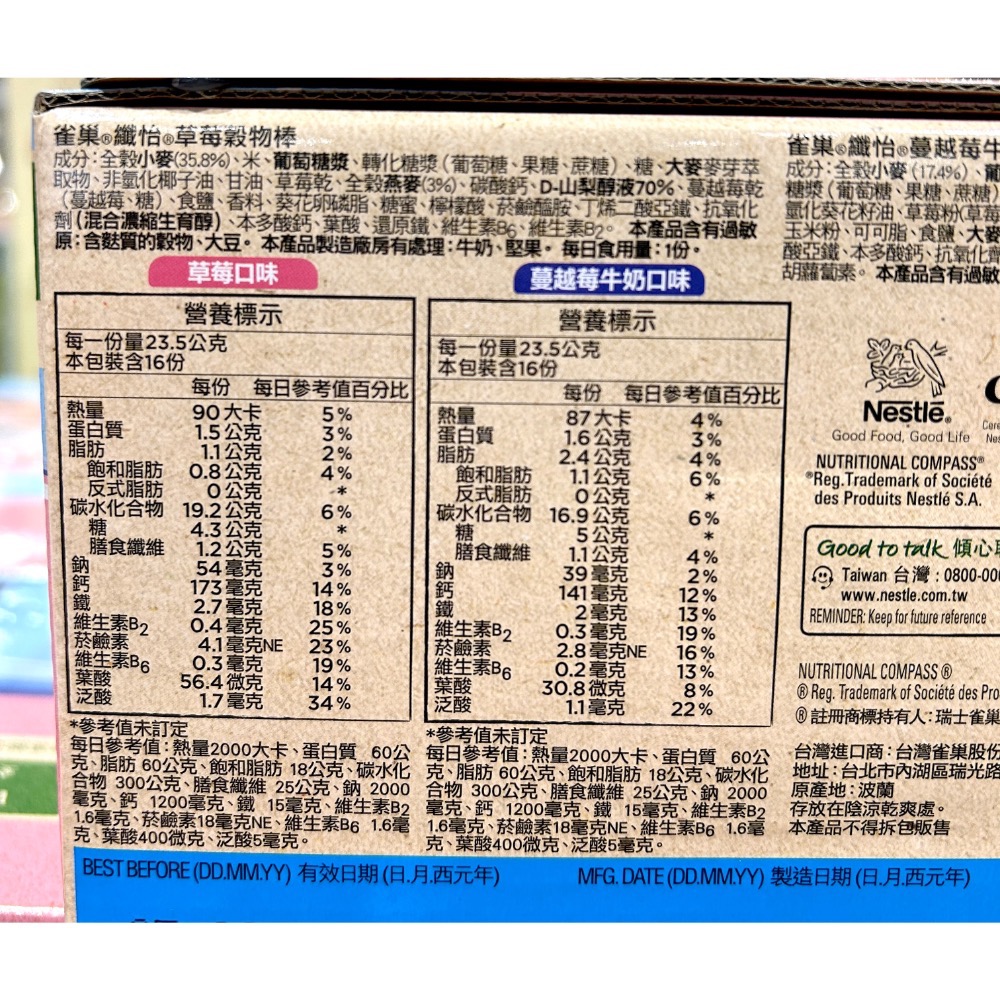 雀巢®纖怡®草莓穀物棒
成分：全穀小麥(35.8%)、米、葡萄糖漿、轉化糖漿（葡萄糖、果糖、蔗糖）、糖、大麥麥芽萃
取物、非氫化椰子油、甘油、草莓乾、全穀燕麥(3%)、碳酸鈣、D-山梨醇液70%、蔓越莓乾
（蔓越莓、糖）、食鹽、香料、葵花卵磷脂、糖蜜、檸檬酸、菸鹼醯胺、丁烯二酸亞鐵、抗氧化
劑（混合濃縮生育醇）、本多酸鈣、葉酸、還原鐵、維生素B6、維生素B2。 本產品含有過敏
原：含麩質的穀物、大豆。 本產品製造廠房有處理：牛奶、堅果。 每日食用量：1份。
草莓口味
營養標示
每一份量23.5公克
本包裝含16份
每份 每日參考值百分比
熱量 90大卡 5%
蛋白質 1.5公克 3%
脂肪 1.1公克 2%
飽和脂肪 0.8公克 4%
反式脂肪 0公克 *
碳水化合物 19.2公克 6%
糖 4.3公克 *
膳食纖維 1.2公克 5%
鈉 54毫克 3%
鈣 173毫克 14%
鐵 2.7毫克 18%
維生素B2 0.4毫克 25%
菸鹼素 4.1毫克NE 23%
維生素B6 0.3毫克 19%
葉酸 56.4微克 14%
泛酸 1.7毫克 34%
*參考值未訂定
每日參考值：熱量2000大卡、蛋白質 60公
克、脂肪 60公克、飽和脂肪 18公克、碳水化
合物 300公克、膳食纖維 25公克、鈉 2000
毫克、鈣 1200毫克、鐵 15毫克、維生素B2
1.6毫克、菸鹼素18毫克NE、維生素B6 1.6毫
克、葉酸400微克、泛酸5毫克。
蔓越莓牛奶口味
營養標示
每一份量23.5公克
本包裝含16份
每份 每日參考值百分比
熱量 87大卡 4%
蛋白質 1.6公克 3%
脂肪 2.4公克 4%
飽和脂肪 1.1公克 6%
反式脂肪 0公克 *
碳水化合物 16.9公克 6%
糖 5公克 *
膳食纖維 1.1公克 4%
鈉 39毫克 2%
鈣 141毫克 12%
鐵 2毫克 13%
維生素B2 0.3毫克 19%
菸鹼素 2.8毫克NE 16%
維生素B6 0.2毫克 13%
葉酸 30.8微克 8%
泛酸 1.1毫克 22%
*參考值未訂定
每日參考值：熱量2000大卡、蛋白質 60公
克、脂肪 60公克、飽和脂肪 18公克、碳水化
合物 300公克、膳食纖維 25公克、鈉 2000
毫克、鈣 1200毫克、鐵 15毫克、維生素B2
1.6毫克、菸鹼素18毫克NE、維生素B6 1.6毫
克、葉酸400微克、泛酸5毫克。
雀巢®纖怡®蔓越莓牛
成分：全穀小麥 (17.4%)、葡
糖漿（葡萄糖、果糖、蔗糖）
氫化葵花籽油、草莓粉(草莓
玉米粉、可可脂、食鹽、大麥
酸亞鐵、本多酸鈣、抗氧化劑
胡蘿蔔素。 本產品含有過敏
Nestlé®
Good Food, Good Life
NUTRITIONAL COMPASS®
®Reg.Trademark of Société
des Produits Nestlé S.A.
Good to talk 傾心
Taiwan 台灣：0800-00
www.nestle.com.tw
REMINDER: Keep for future reference
NUTRITIONAL COMPASS ®
® Reg. Trademark of Société des Pro
® 註冊商標持有人：瑞士雀巢
台灣進口商：台灣雀巢股份
地址：台北市內湖區瑞光路
原產地：波蘭
存放在陰涼乾爽處。
本產品不得拆包販售
BEST BEFORE (DD.MM.YY) 有效日期 (日.月.西元年)
MFG. DATE (DD.MM.YY) 製造日期 (日.月.西元年)